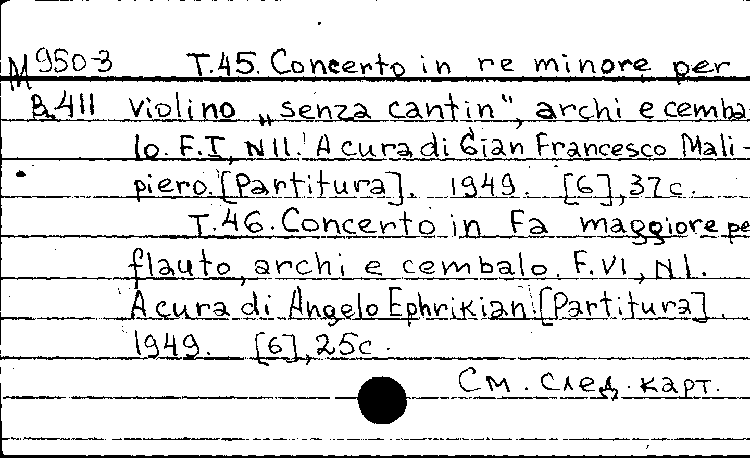 М 950-3 T.45. Concerto in re minore per
В.411 violino „senza cantin“, archi e cemba
lo. F.I, N11. A cura di Gian Francesco Mali-
piero. [Partitura]. 1949. [6], 37c.
T.46. Concerto in Fa maggiore pe
flauto, archi e cembalo. F.VI, N1.
A cura di Angelo Ephrikian. [Partitura].
1949. [6], 25c.
См. след. карт.